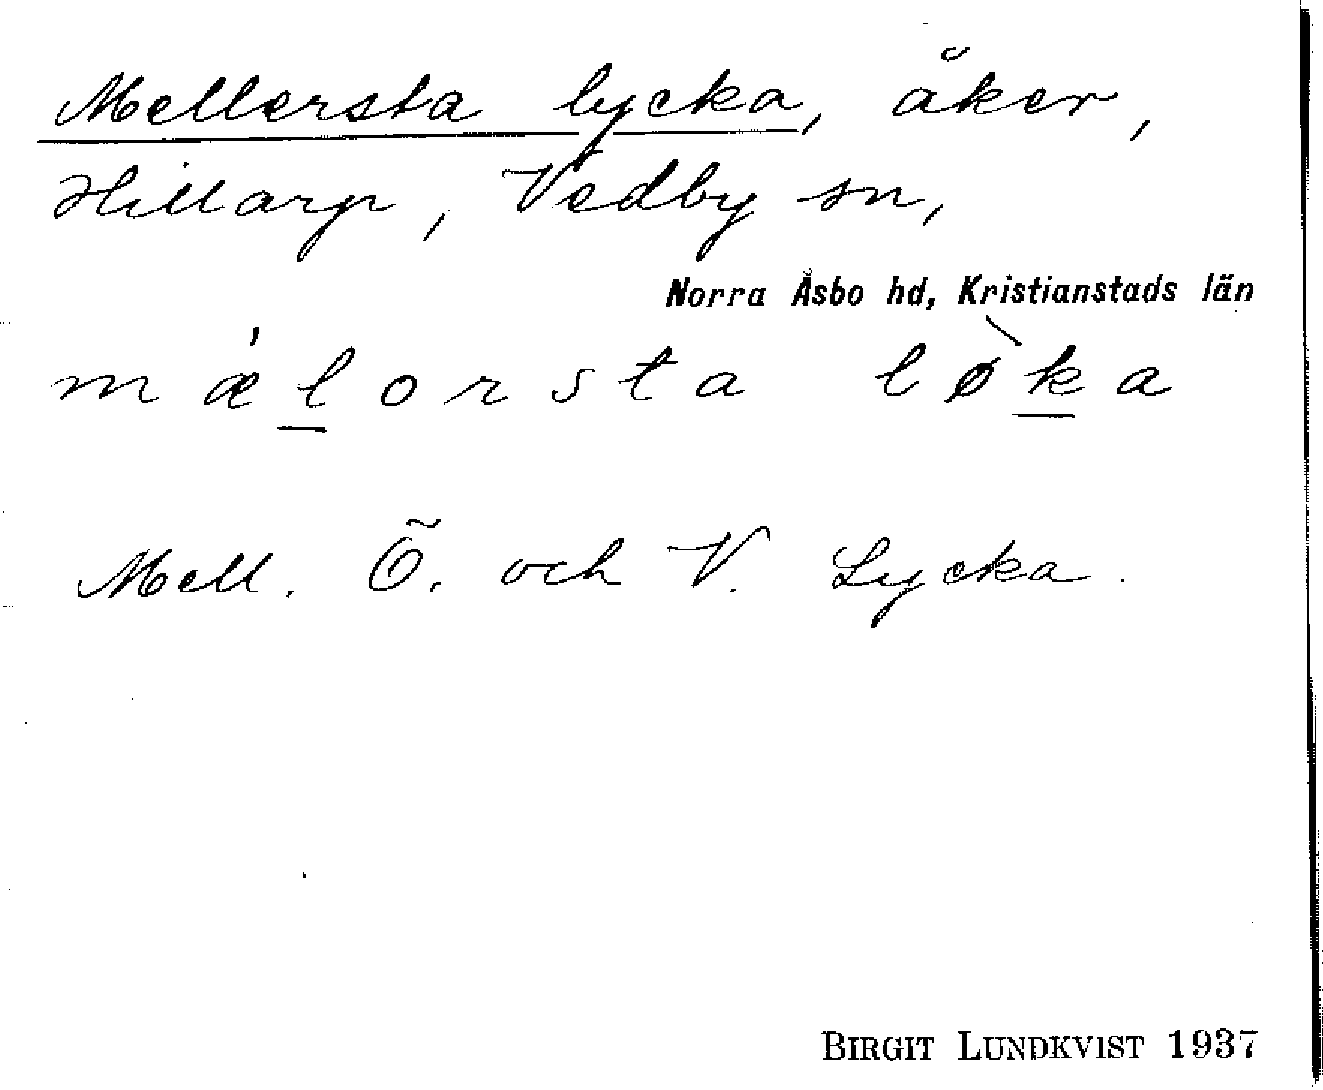 Mellersta lycka, åker,
Hillarp, Vedby sn,
Norra Åsbo hd, Kristianstads län
mǽl̲orsta lø̀k̲a
Mell. Ö. och V. Lycka.
BIRGIT LUNDKVIST 1937